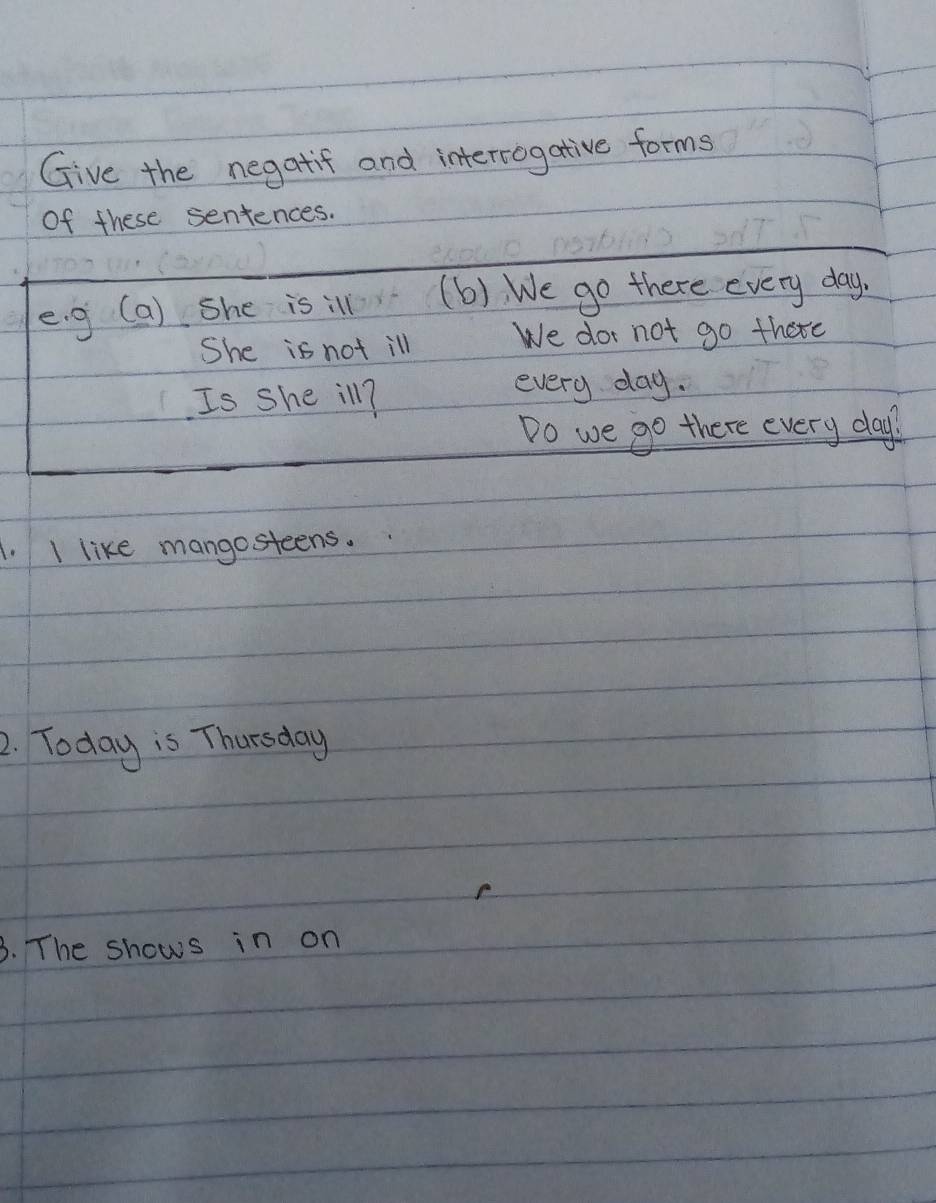 Give the negatif and interrogative forms
Of these sentences.
e.g (a). She is ill (b). We go there every day.
She is not ill We do not go there
Is she ill? every day.
Do we go there every day?
1. I like mangosteens.
2. Today is Thursday
3. The shows in on